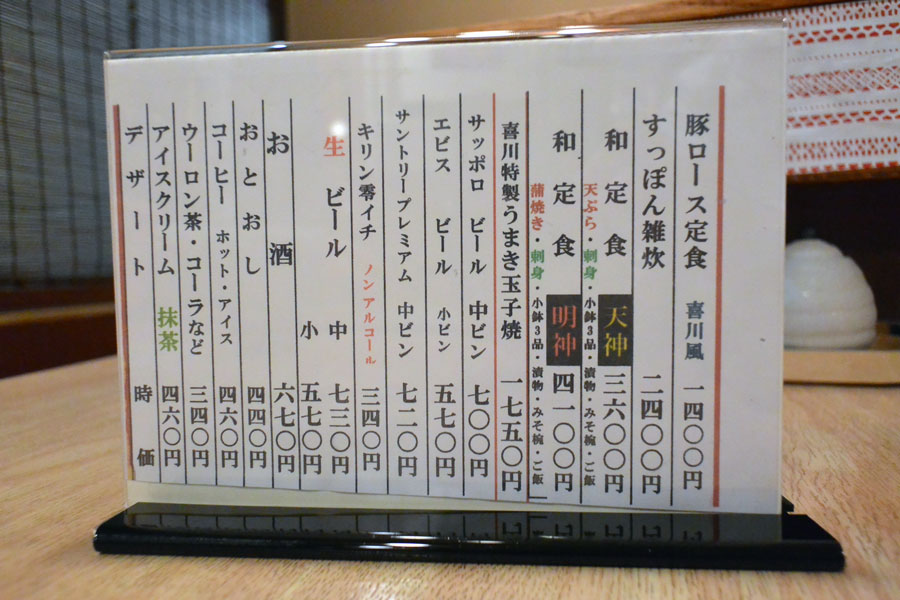 豚ロース定食 喜川風 一四〇〇円
すっぽん雑炊 二四〇〇円
和定食 天神 三六〇〇円
天ぷら・刺身・小鉢3品・漬物・みそ椀・ご飯
和定食 明神 四一〇〇円
蒲焼き・刺身・小鉢3品・漬物・みそ椀・ご飯
喜川特製うまき玉子焼 一七五〇円
サッポロ ビール 中ビン 七〇〇円
エビス ビール 小ビン 五七〇円
サントリープレミアム 中ビン 七二〇円
キリン零イチ ノンアルコール 三四〇円
生ビール 中 七三〇円
小 五七〇円
お酒 六七〇円
おとおし 四四〇円
コーヒー ホット・アイス 四六〇円
ウーロン茶・コーラなど 三四〇円
アイスクリーム 抹茶 四六〇円
デザート 時価